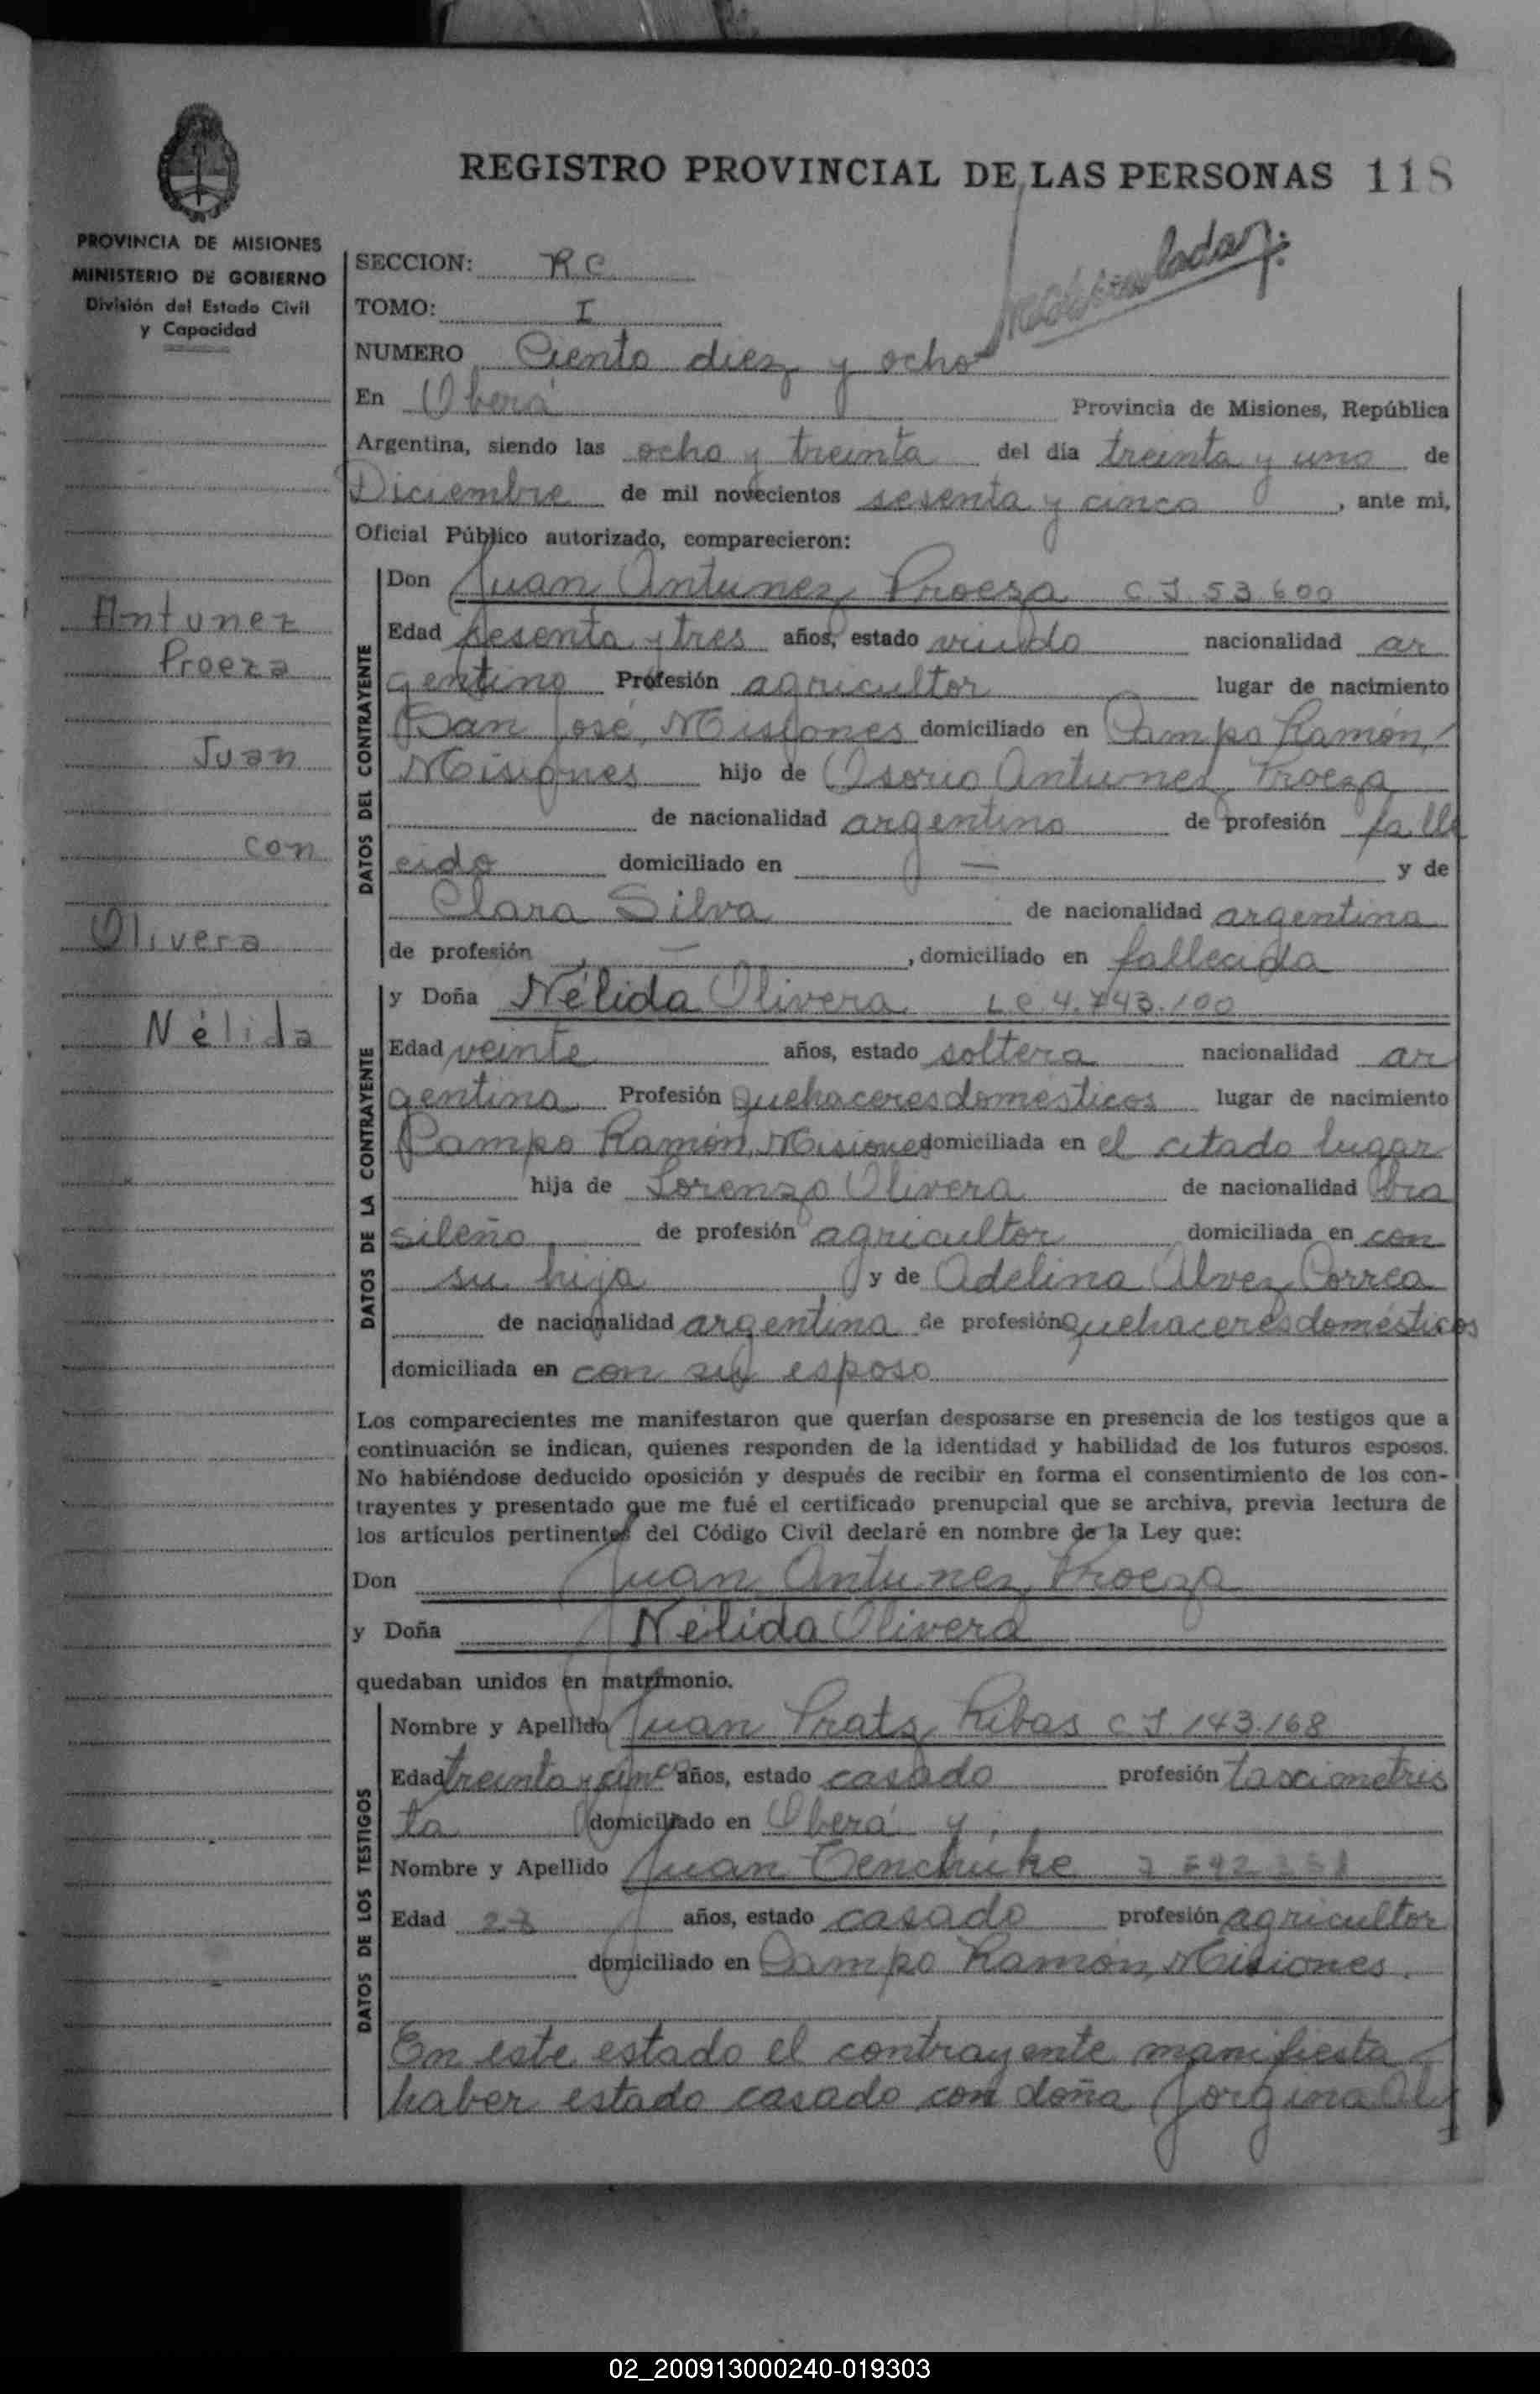 REGISTRO PROVINCIAL DE LAS PERSONAS 118
PROVINCIA DE MISIONES
MINISTERIO DE GOBIERNO
División del Estado Civil
y Capacidad
SECCION: RC
TOMO: I
NUMERO Ciento diez y ocho
En Oberá Provincia de Misiones, República
Argentina, siendo las ocho y treinta del día treinta y uno de
Diciembre de mil novecientos sesenta y cinco, ante mi,
Oficial Público autorizado, comparecieron:
Antunez
Proeza
Juan
con
Olivera
Nélida
DATOS DEL CONTRAYENTE
Don Juan Antunez Proeza C I 53.600
Edad sesenta y tres años, estado viudo nacionalidad ar
gentino Profesión agricultor lugar de nacimiento
San José, Misiones domiciliado en Campo Ramón,
Misiones hijo de Osorio Antunez Proeza
de nacionalidad argentino de profesión falle
cido domiciliado en — y de
Clara Silva de nacionalidad argentina
de profesión —, domiciliado en fallecida
DATOS DE LA CONTRAYENTE
y Doña Nélida Olivera LC 4.743.100
Edad veinte años, estado soltera nacionalidad ar
gentina Profesión quehaceres domésticos lugar de nacimiento
Campo Ramón, Misiones domiciliada en el citado lugar
hija de Lorenzo Olivera de nacionalidad bra
sileño de profesión agricultor domiciliada en con
su hija y de Adelina Alvez Correa
de nacionalidad argentina de profesión quehaceres domésticos
domiciliada en con su esposo
Los comparecientes me manifestaron que querían desposarse en presencia de los testigos que a
continuación se indican, quienes responden de la identidad y habilidad de los futuros esposos.
No habiéndose deducido oposición y después de recibir en forma el consentimiento de los con-
trayentes y presentado que me fué el certificado prenupcial que se archiva, previa lectura de
los artículos pertinentes del Código Civil declaré en nombre de la Ley que:
Don Juan Antunez Proeza
y Doña Nélida Olivera
quedaban unidos en matrimonio.
DATOS DE LOS TESTIGOS
Nombre y Apellido Juan Pratz Ribas C I 143.168
Edad treinta y cinco años, estado casado profesión taximetris
ta domiciliado en Oberá y
Nombre y Apellido Juan Tenchuke
Edad años, estado casado profesión agricultor
domiciliado en Campo Ramón, Misiones.
En este estado el contrayente manifiesta
haber estado casado con doña Jorgina Al
02_200913000240-019303